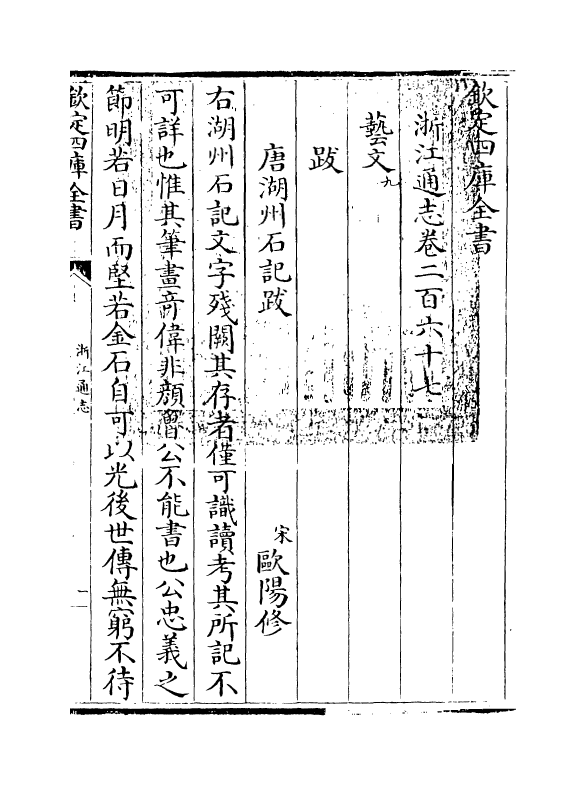 欽定四庫全書
浙江通志卷二百六十七
藝文九
跋
唐湖州石記跋 宋歐陽修
右湖州石記文字殘闕其存者僅可識讀考其所記不
可詳也惟其筆畫竒偉非顔魯公不能書也公忠義之
節明若日月而堅若金石自可以光後世傳無窮不待
欽定四庫全書
浙江通志